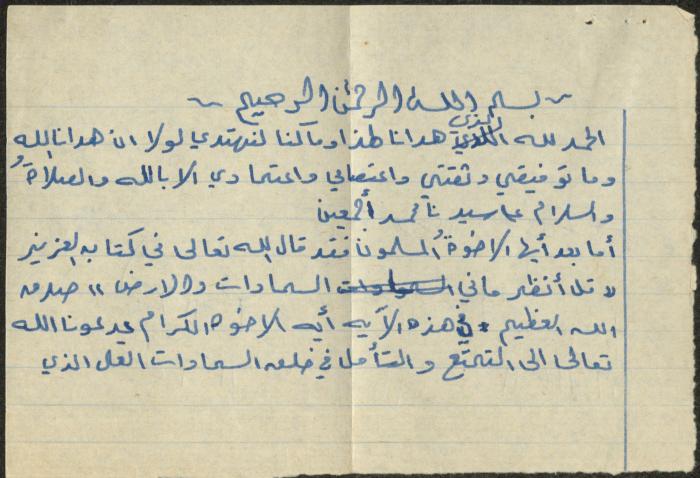 ~ بسم الله الرحمن الرحيم ~
الحمد لله الذي هدانا لهذا وماكنا لنهتدي لولا ان هدانا الله
وما توفيقي وثقتي واعتصامي واعتمادي الا بالله والصلاةُ
والسلام على سيدنا محمد أجمعين
أما بعد أيها الاخوةُ المسلمون فقد قال الله تعالى في كتابه العزيز
" قل أنظر ماني السماوات السماوات والارض " صدق
الله العظيم • في هذه الآيه أيه الاخوه الكرام يدعونا الله
تعالى الى التمتع والتأمل في خلق السماوات العلى الذي